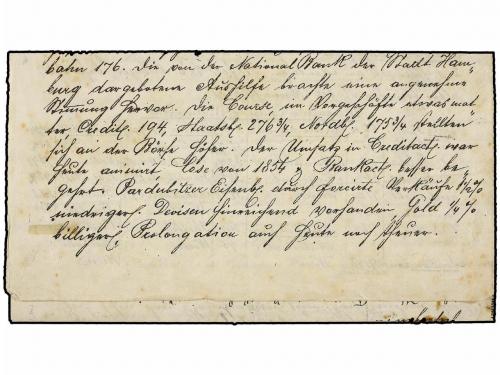 bahn 176. Die von der National Bank der Stadt Ham-
burg dargebotene Aushilfe brachte eine angenehme
Stimmung hervor. Die Course, im Vorgeschäfte etwas mat-
ter, Creditb. 194, Staatsb. 276 3/4, Nordb. 175 3/4 stellten
sich an der Börse höher. Der Umsatz in Creditact. war
heute animirt, Lose von 1854 & Bankact. besser be-
gehrt. Pardubitzer Eisenb. durch forcirte Verkäufe 1 1/2 %
niedriger. Devisen hinreichend vorhanden Gold 1/4 %
billiger, Prolongation auch heute noch theuer.